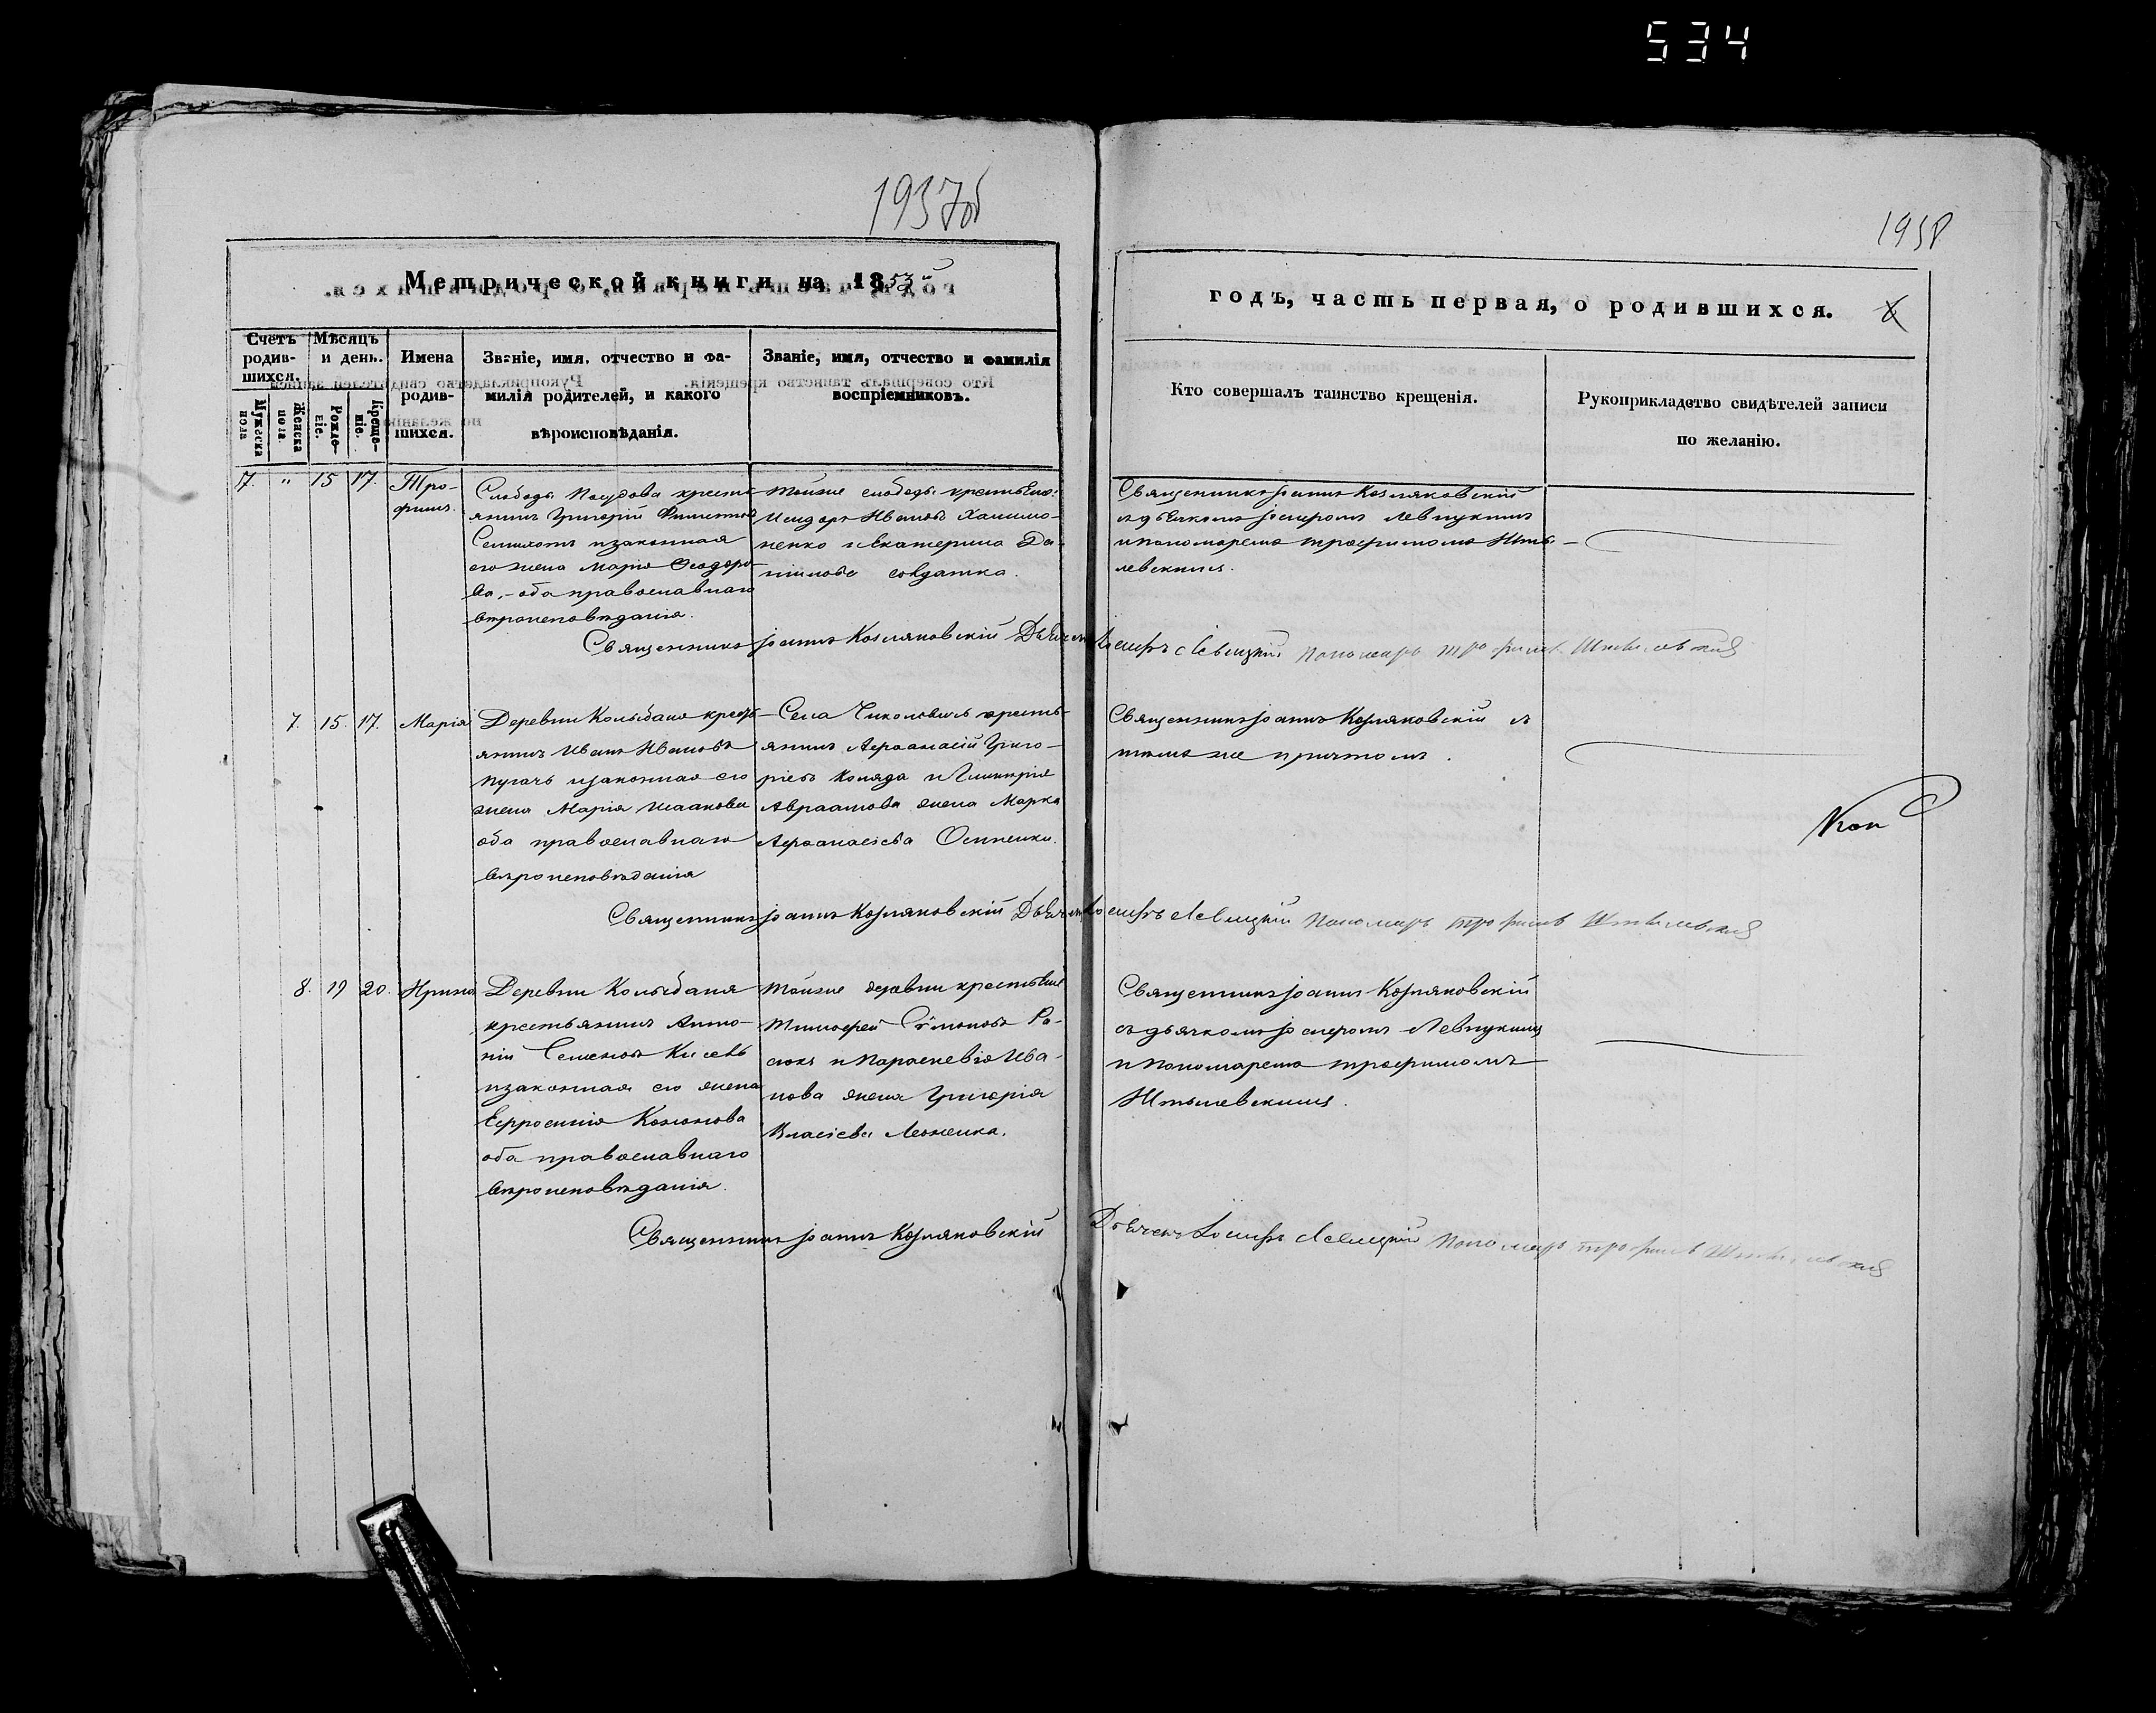 534
1937об
1938
Метрической книги на 1853й
годъ, часть первая, о родившихся.
6
Счетъ родив-шихся.
Мужеска пола
Женска пола.
Мѣсяцъ и день.
Рожде-ніе.
Креще-ніе.
Имена
родив-
шихся.
Званіе, имя, отчество и фа-
милія родителей, и какого
вѣроисповѣданія.
Званіе, имя, отчество и фамилія
воспріемниковъ.
Кто совершалъ таинство крещенія.
Рукоприкладство свидѣтелей записи
по желанію.
7. " 15 17. Тро-
фимъ.
Слободы крестья
янинъ Григорій
изаконная
его жена Марія Ѳеодоро-
ва, - оба православнаго
вѣроисповѣданія.
Тойже слободы крестьяне:
Исидоръ Ивановъ
ненко и Екатерина Да-
нилова солдатка.
Священникъ Іоаннъ Козляковскій
съ дьячкомъ Іосифомъ Левицкимъ
и пономаремъ Трофимомъ Шты-
левскимъ.
Священникъ Іоаннъ Козляковскій Дьячекъ Іосифъ Левицкій Пономарь Трофимъ Штылевскій
7. 15. 17. Марія
Деревни Колыбани кресть-
янинъ Иванъ Ивановъ
Пугачъ изаконная его
жена Марія Исаакова
оба православнаго
вѣроисповѣданія
Села крестъ-
янинъ Афанасій Григо-
ріевъ Коляда и Гликирія
Авраамова жена Марка
Афанасіева Осипенки.
Священникъ Іоаннъ Козляковскій съ
тѣмъ же причтомъ.
Коп
Священникъ Іоаннъ Козляковскій Дьячекъ Іосифъ Левицкій Пономарь Трофимъ Штылевскій
8. 19 20. Ирина
Деревни Колыбани
крестьянинъ Анто-
ній Семеновъ
изаконная его жена
Евфросинія Кононова
оба православнаго
вѣроисповѣданія.
Тойже деревни крестьяне
Тимофей Симоновъ Ра-
и Параскевія Ива-
нова жена Григорія
Власіева
Священникъ Іоаннъ Козляковскій
съ дьячкомъ Іосифомъ Левицкимъ
и пономаремъ Трофимомъ
Штылевскимъ.
Священникъ Іоаннъ Козляковскій Дьячекъ Іосифъ Левицкій Пономарь Трофимъ Штылевскій